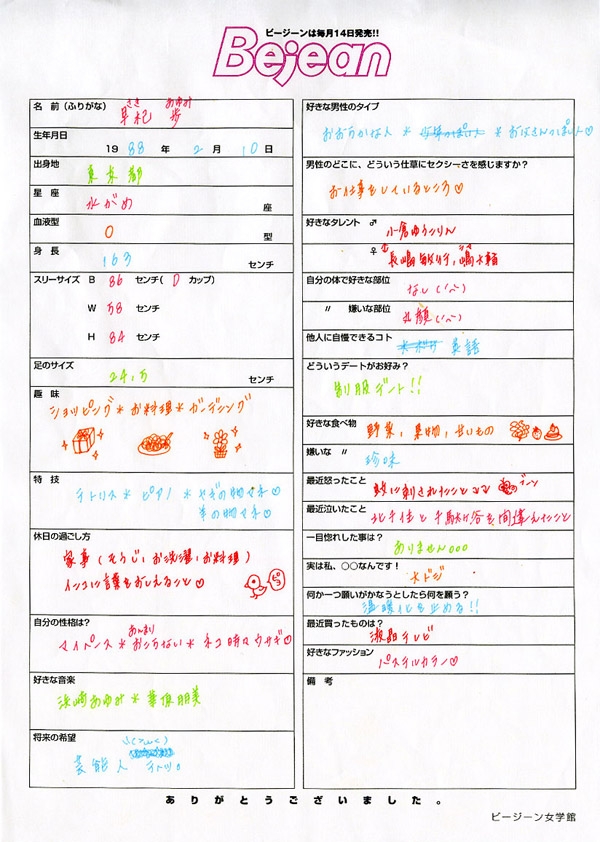 ビージーンは毎月14日発売!!
Bejean
名 前(ふりがな)
早杞 歩
さき あゆみ
生年月日
1988年2月10日
出身地
東京都
星 座
水がめ 座
血液型
O 型
身 長
163 センチ
スリーサイズ B 86 センチ( D カップ)
W 58 センチ
H 84 センチ
足のサイズ
24,5 センチ
趣 味
ショッピング＊お料理＊ガーデニング
特 技
テトリス＊ピアノ＊ヤギの物マネ♡
羊の物マネ♡
休日の過ごし方
家事(そうじ,お洗濯,お料理)
インコに言葉をおしえること♡
ピヨ
自分の性格は?
あんまり
マイペース＊おこらない＊ネコ時々ウサギ♡
好きな音楽
浜崎あゆみ＊華原朋美
将来の希望
芸能人
好きな男性のタイプ
おおらかな人＊おばさんっぽい人♡
男性のどこに、どういう仕草にセクシーさを感じますか?
お仕事をしているところ♡
好きなタレント ♂
小倉ゆうこりん
♀
長嶋敏行,嶋大輔
自分の体で好きな部位
なし
〃 嫌いな部位
丸顔
他人に自慢できるコト
英語
どういうデートがお好み?
制服デート!!
好きな食べ物
野菜,果物,甘いもの
嫌いな 〃
珍味
最近怒ったこと
蚊に刺されたこと
最近泣いたこと
北千住と千駄ヶ谷を間違えたこと
一目惚れした事は?
ありません。。。
実は私、○○なんです!
大ドジ
何か一つ願いがかなうとしたら何を願う?
温暖化を止める!!
最近買ったものは?
液晶テレビ
好きなファッション
パステルカラー♡
備 考
ありがとうございました。
ビージーン女学館